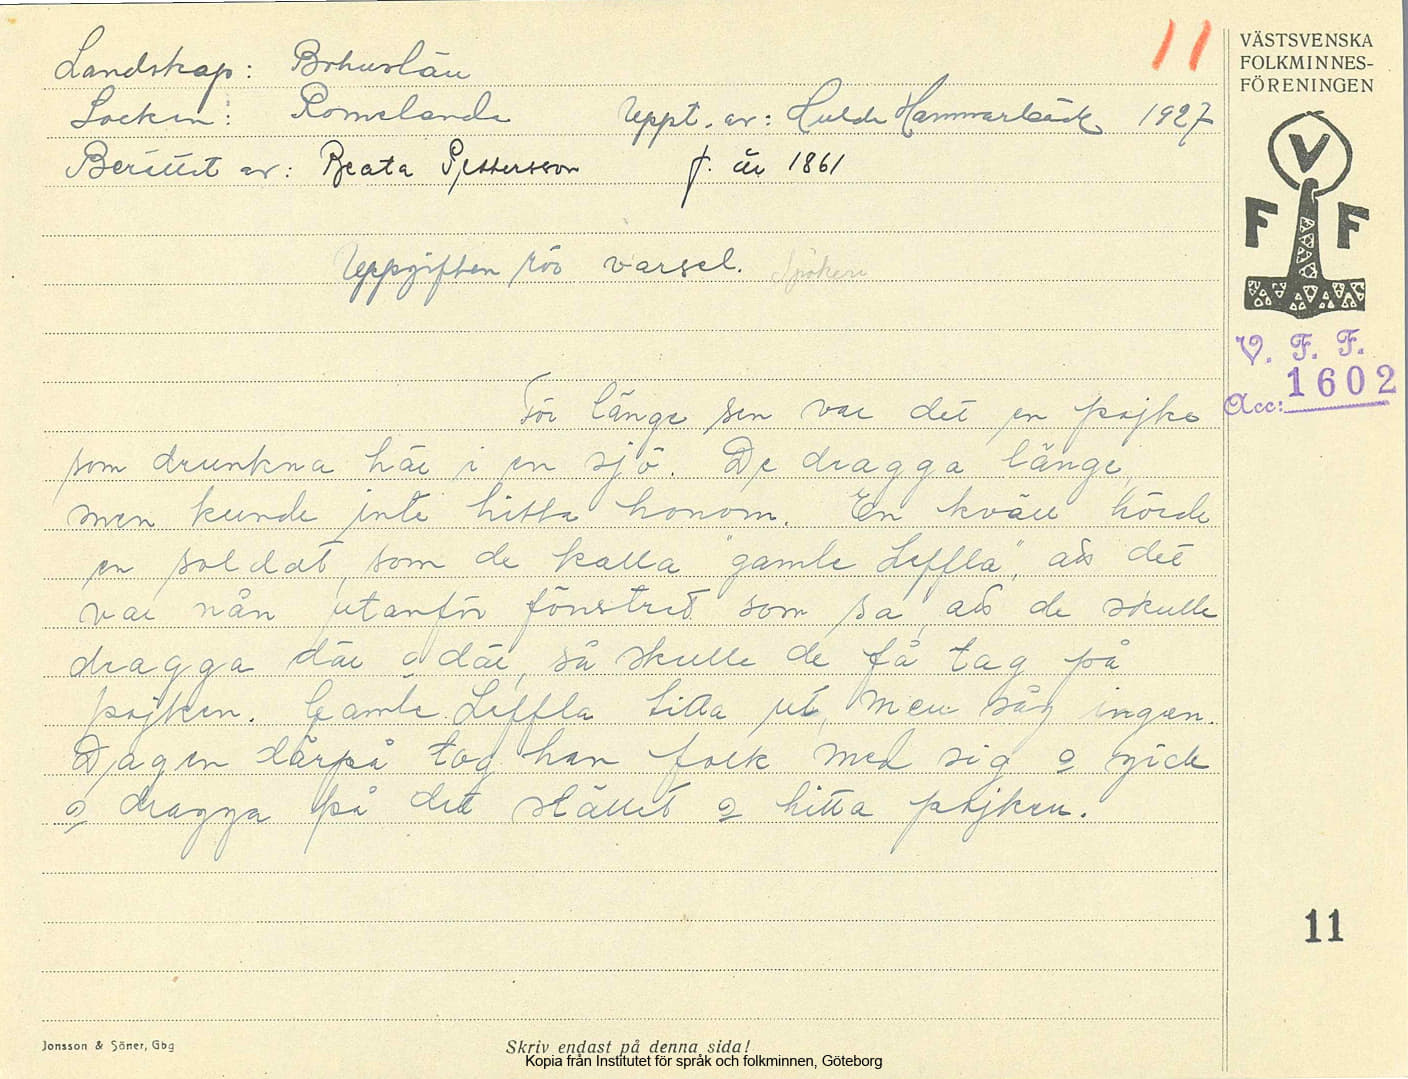 Landskap: Bohuslän
11
VÄSTSVENSKA
FOLKMINNES-
FÖRENINGEN
Socken: Romelanda Uppt. av: Hulda Hammarbäck 1927
Berättat av: Beata Pettersson f. år 1861
V
F F
Uppgiften rör varsel. Spöken
V. F. F.
Acc: 1602
För länge sen var det en pojke
som drunkna här i en sjö. De dragga länge,
men kunde inte hitta honom. En kväll hörde
en soldat, som de kalla "gamle Leffla", att det
var nån utanför fönstret som sa, att de skulle
dragga där o där, så skulle de få tag på
pojken. Gamle Leffla titta ut, men såg ingen.
Dagen därpå tog han folk med sig o gick
o dragga på det stället o hitta pojken.
11
Jonsson & Söner, Gbg
Skriv endast på denna sida!
Kopia från Institutet för språk och folkminnen, Göteborg